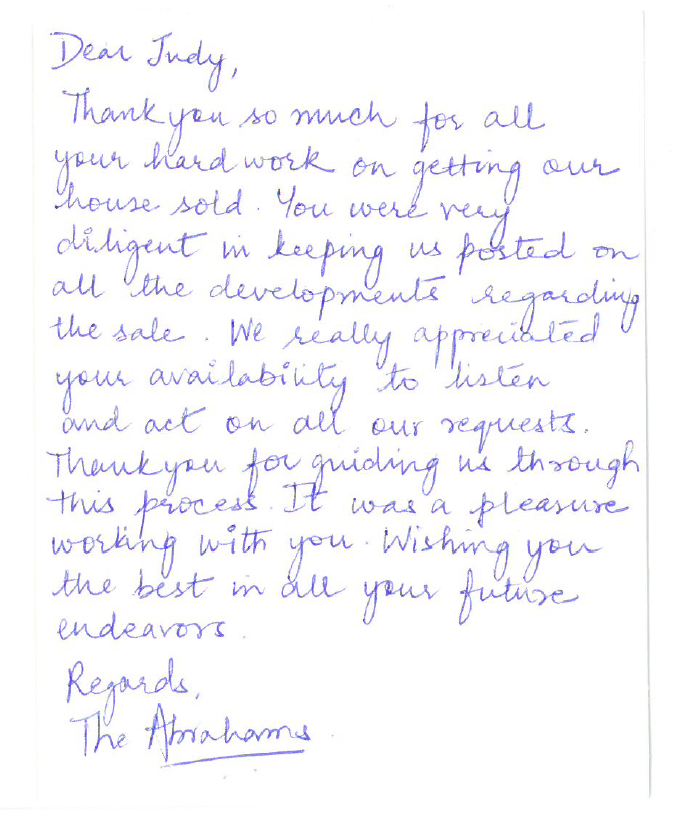 Dear Judy,
Thank you so much for all
your hard work on getting our
house sold. You were very
diligent in keeping us posted on
all the developments regarding
the sale. We really appreciated
your availability to listen
and act on all our requests.
Thank you for guiding us through
this process. It was a pleasure
working with you. Wishing you
the best in all your future
endeavors.
Regards,
The Abrahams